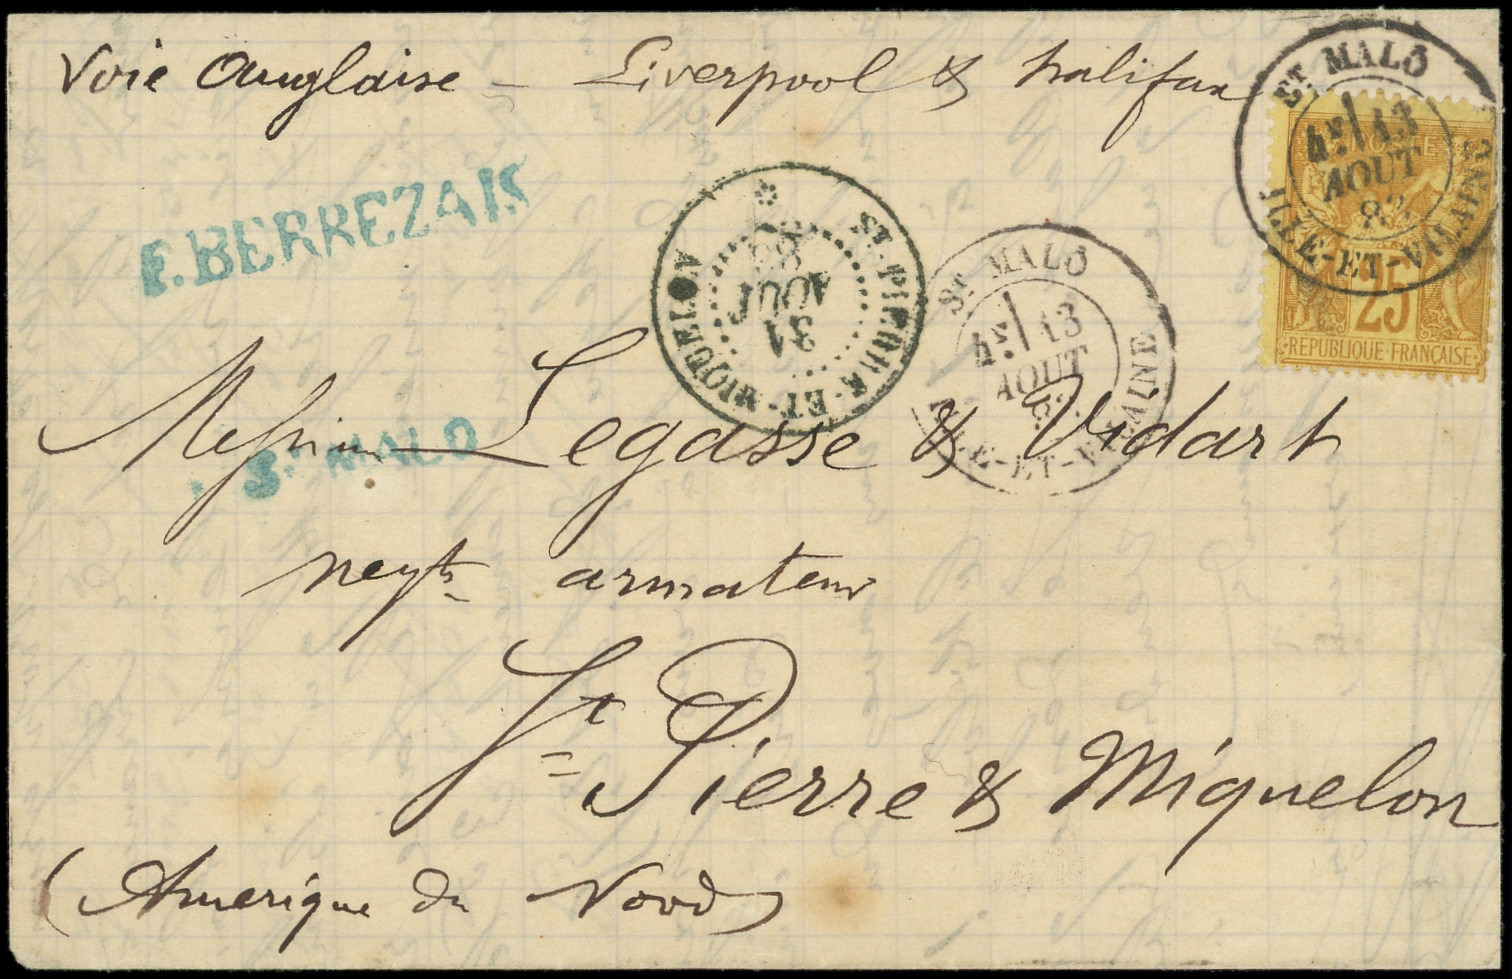 Voie Anglaise - Liverpool & halifax
F. BERREZAIS
ST MALO
4E 13
AOUT
82
ILLE-ET-VILAINE
25
REPUBLIQUE FRANÇAISE
ST-PIERRE-ET-MIQUELON
31
AOUT
ST MALO
4E 13
AOUT
ILLE-ET-VILAINE
Messieurs Legasse & Vidart
St MALO
negts armateurs
St Pierre & Miquelon
(Amerique du Nord)